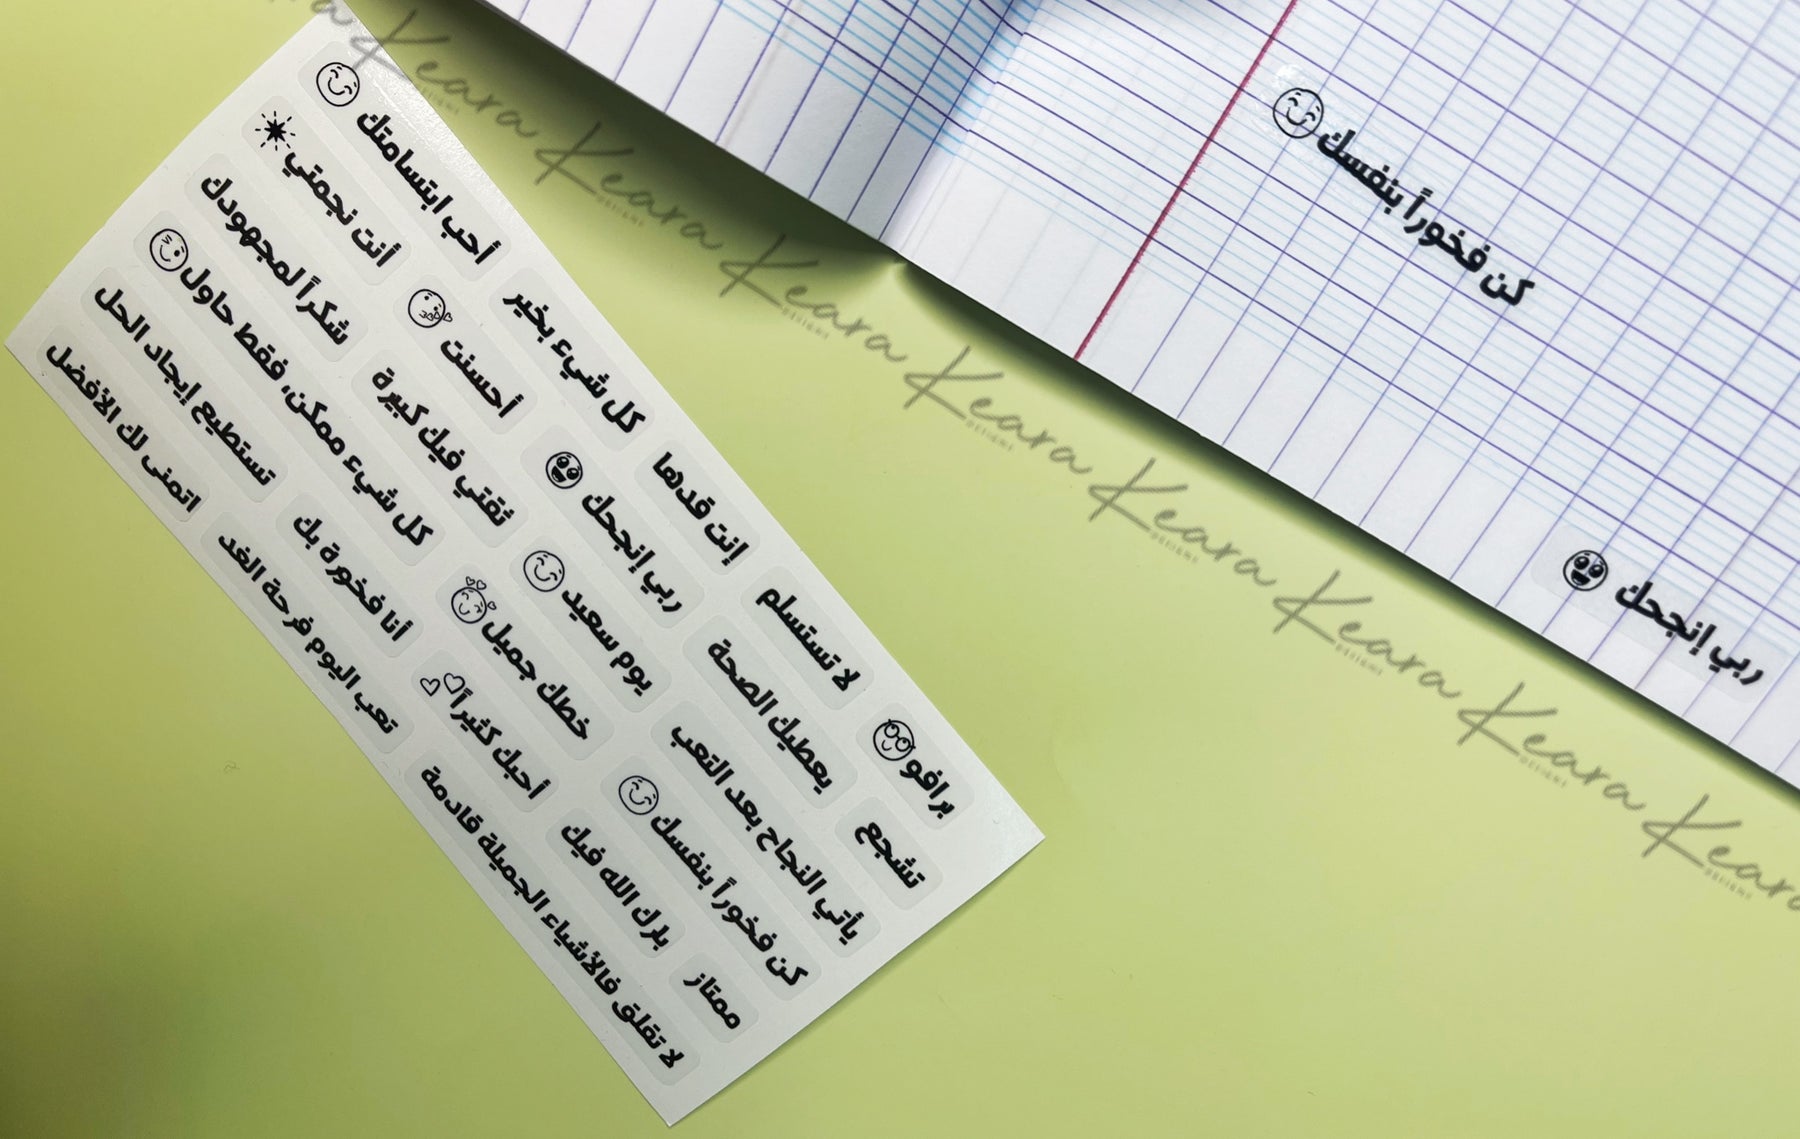 أحب ابتسامتك
كل شيء بخير
إنت قدها
لا تستسلم
برافو
أنت نجمتي
أحسنت
ربي إنجحك
يعطيك الصحة
تشجع
شكراً لمجهودك
ثقتي فيك كبيرة
يوم سعيد
يأتي النجاح بعد التعب
كل شيء ممكن، فقط حاول
خطك جميل
كن فخوراً بنفسك
تستطيع إيجاد الحل
أنا فخورة بك
أحبك كثيراً
بارك الله فيك
ممتاز
اتمنى لك الأفضل
تعب اليوم فرحة الغد
لا تقلق فالأشياء الجميلة قادمة
كن فخوراً بنفسك
ربي إنجحك
Keara
DESIGNS
Keara
DESIGNS
Keara
DESIGNS
Keara
DESIGNS
Keara
DESIGNS
Keara
DESIGNS
Keara
DESIGNS
Keara
DESIGNS